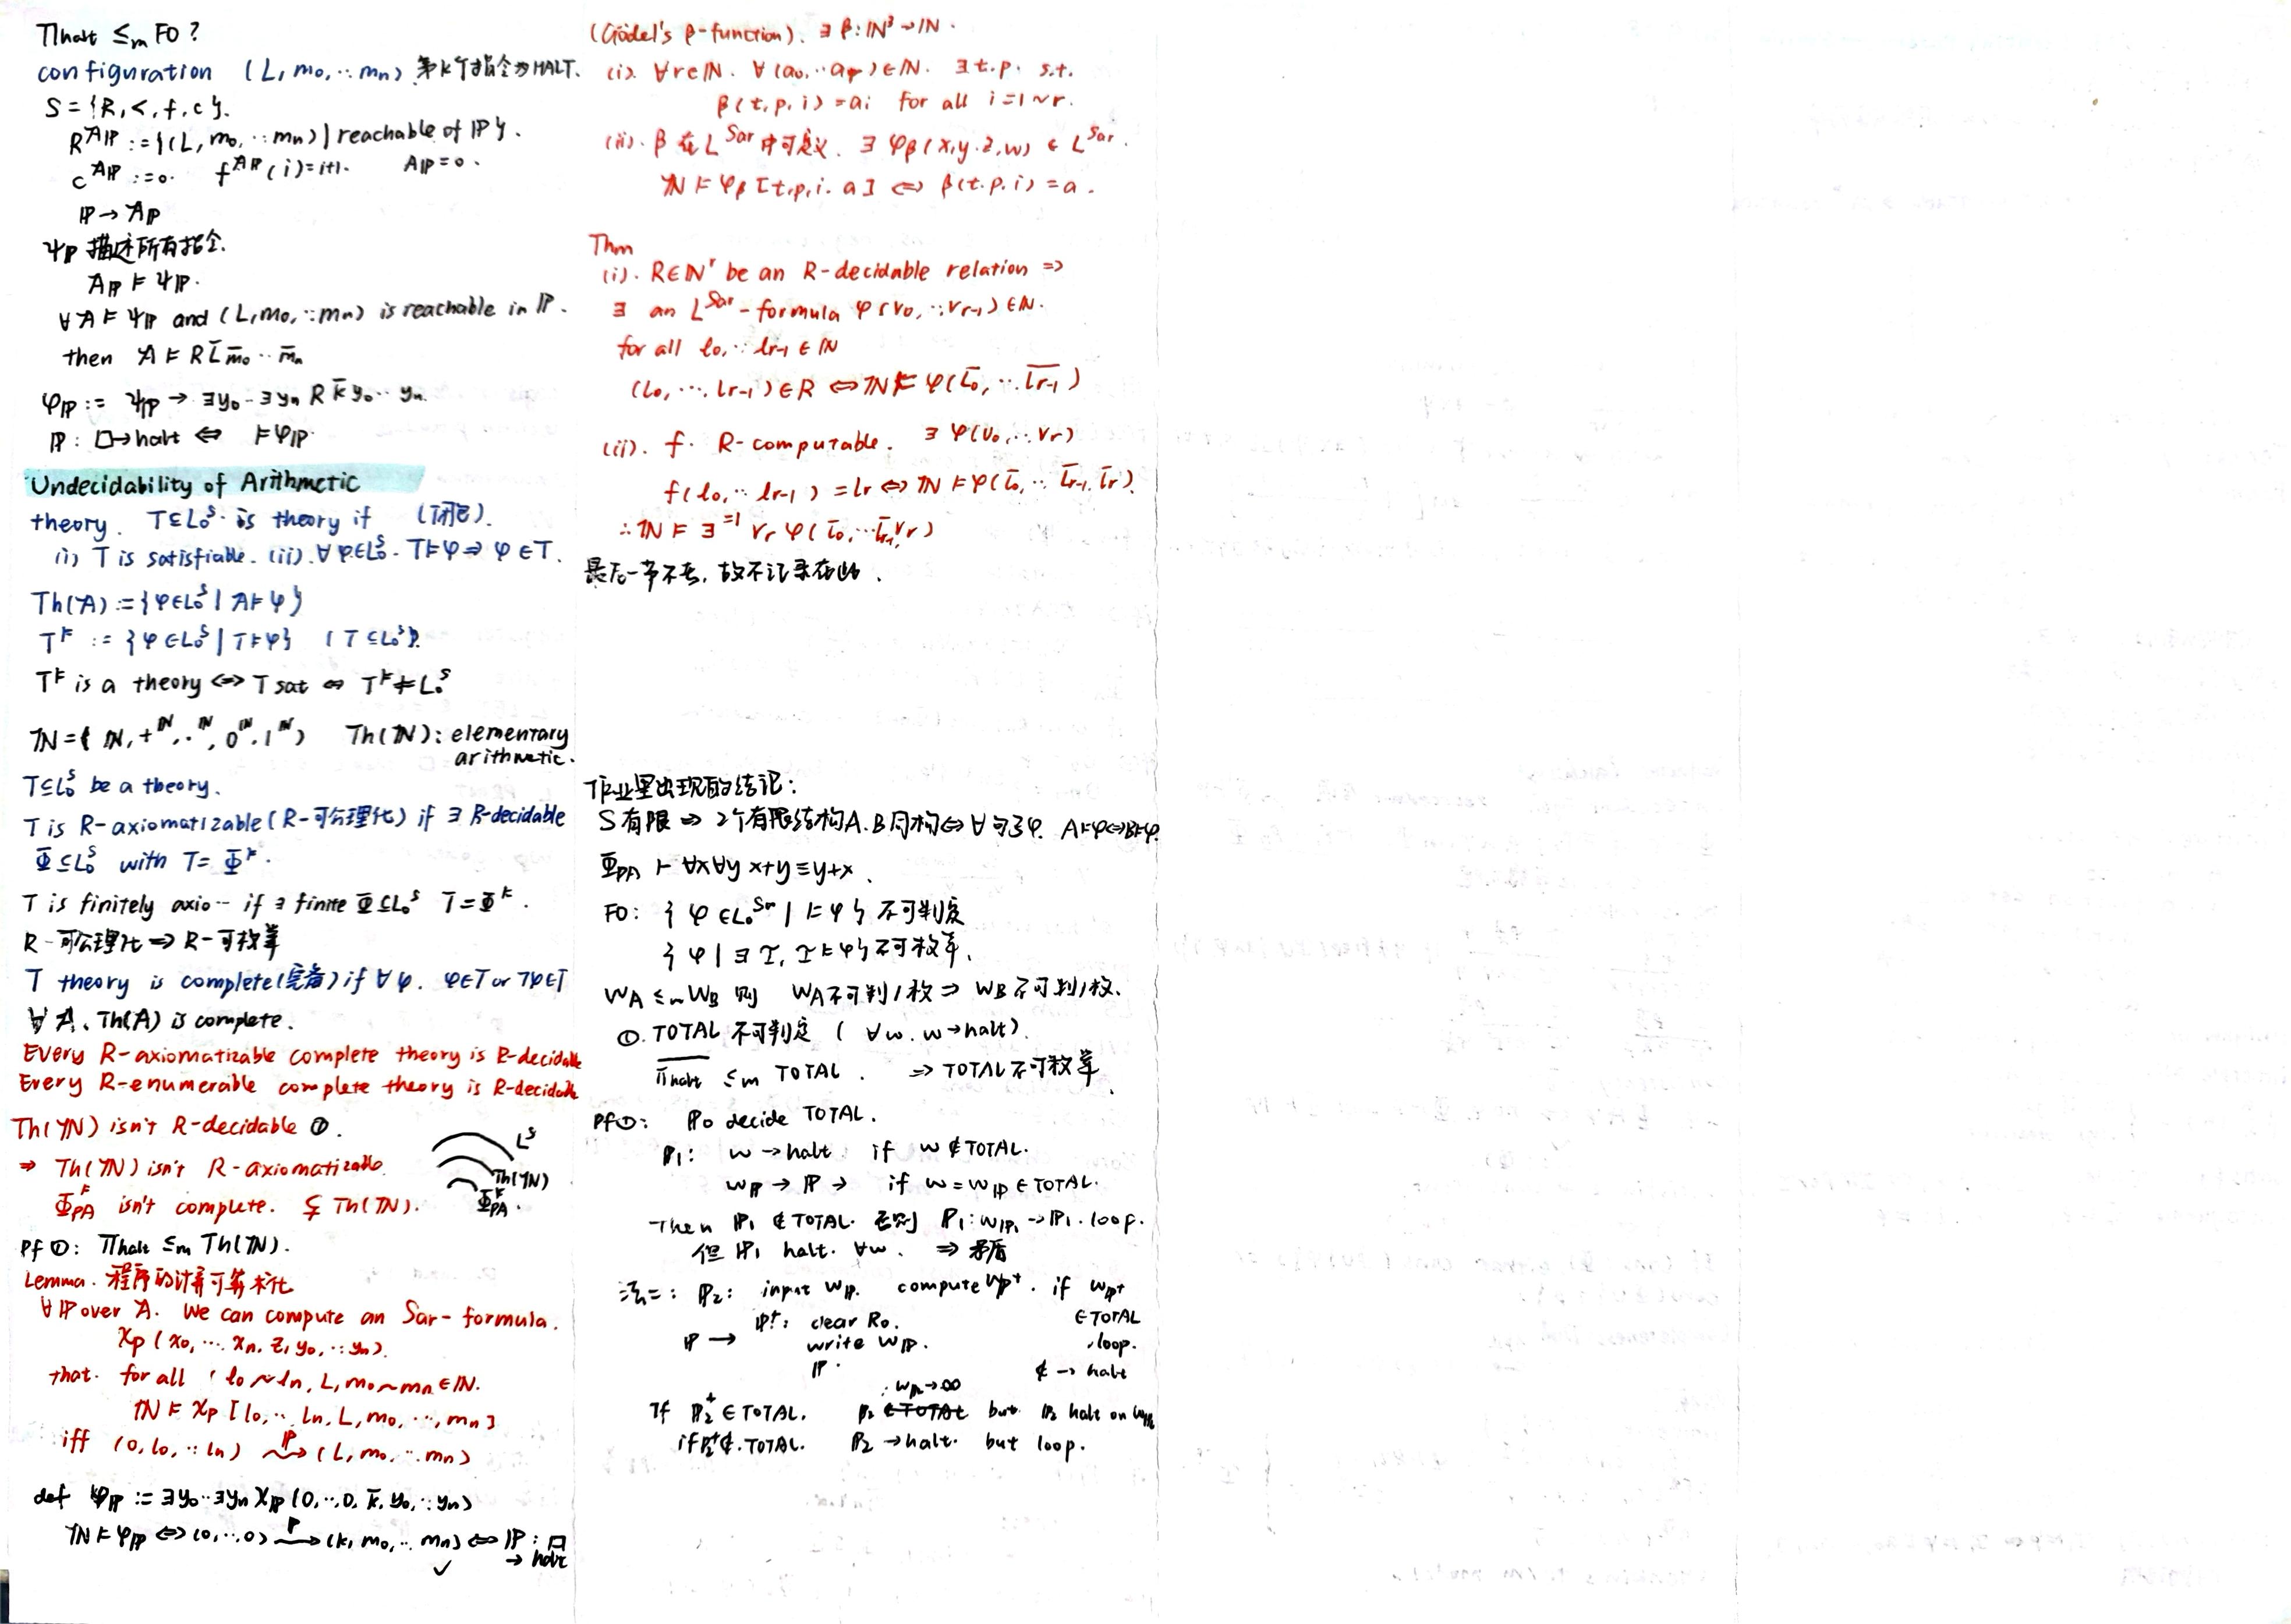 Πhalt ≤m FO ?
configuration (L, m0, ··· mn) 第k个指令为HALT.
S = {R, <, f, c}.
R^𝔄ℙ := {(L, m0, ··· mn) | reachable of ℙ}.
c^𝔄ℙ := 0. f^𝔄ℙ(i)=i+1. 𝔄ℙ = 0.
ℙ → 𝔄ℙ
ψℙ 描述所有指令.
𝔄ℙ ⊨ ψℙ.
∀𝔄 ⊨ ψℙ and (L, m0, ··· mn) is reachable in ℙ.
then 𝔄 ⊨ R L̄ m̄0 ·· m̄n
φℙ := ψℙ → ∃y0 - ∃yn R k̄ y0 ·· yn.
ℙ : □ → halt ⇔ ⊨ φℙ.
Undecidability of Arithmetic
theory. T ⊆ L0^S is theory if (T闭包).
(i) T is satisfiable. (ii). ∀φ∈L0^S. T⊨φ ⇒ φ∈T.
Th(𝔄) := {φ∈L0^S | 𝔄⊨φ}
T^⊨ := {φ∈L0^S | T⊨φ} (T⊆L0^S).
T^⊨ is a theory ⇔ T sat ⇔ T^⊨ ≠ L0^S
𝔑 = (ℕ, +^ℕ, ·^ℕ, 0^ℕ, 1^ℕ) Th(𝔑): elementary
arithmetic.
T⊆L0^S be a theory.
T is R-axiomatizable (R-可公理化) if ∃ R-decidable
Φ⊆L0^S with T = Φ^⊨.
T is finitely axio-- if ∃ finite Φ⊆L0^S T=Φ^⊨.
R-可公理化 ⇒ R-可枚举
T theory is complete(完备) if ∀φ. φ∈T or ¬φ∈T
∀𝔄, Th(𝔄) is complete.
Every R-axiomatizable complete theory is R-decidable
Every R-enumerable complete theory is R-decidable
Th(𝔑) isn't R-decidable ①.
⇒ Th(𝔑) isn't R-axiomatizable.
Φ_PA^⊨ isn't complete. ⊊ Th(𝔑).
L^S
Th(𝔑)
Φ_PA^⊨.
Pf ①: Πhalt ≤m Th(𝔑).
Lemma. 程序的计算可算术化
∀ℙ over 𝒜. we can compute an Sar-formula.
χp (x0, ··· xn, z, y0, ·· yn).
that. for all (l0 ~ ln, L, m0 ~ mn ∈ ℕ.
𝔑 ⊨ χp [l0, ·· ln, L, m0, ···, mn]
iff (0, l0, ·· ln) →^ℙ (L, m0, ·· mn)
def φℙ := ∃y0 ·· ∃yn χℙ (0, ··, 0, k̄, y0, ·· yn)
𝔑 ⊨ φℙ ⇔ (0, ··, 0) →^ℙ (k, m0, ·· mn) ⇔ ℙ : □
✓ → halt
(Gödel's β-function). ∃ β: ℕ³→ℕ.
(i). ∀r∈ℕ. ∀(a0, ·· ar)∈ℕ. ∃t.p. s.t.
β(t, p, i) = ai for all i=1~r.
(ii). β 在 L^Sar 中可定义. ∃ φβ(x,y,z,w) ∈ L^Sar.
𝔑 ⊨ φβ [t,p,i.a] ⇔ β(t.p.i) = a.
Thm
(i). R∈ℕ^r be an R-decidable relation ⇒
∃ an L^Sar-formula φ(v0, ·· vr-1)∈ℕ.
for all l0, ·· lr-1 ∈ ℕ
(l0, ···, lr-1)∈R ⇔ 𝔑 ⊨ φ(l̄0, ·· l̄r-1)
(ii). f. R-computable. ∃ φ(v0, ·· vr)
f(l0, ·· lr-1) = lr ⇔ 𝔑 ⊨ φ(l̄0, ·· l̄r-1, l̄r).
∴ 𝔑 ⊨ ∃^=1 vr φ(l̄0, ··· l̄r-1, vr)
最后一节不考, 故不记录在此.
作业里出现的结论:
S有限 ⇒ 2个有限结构A.B同构 ⇔ ∀句子φ. A⊨φ⇔B⊨φ.
Φ_PA ⊢ ∀x∀y x+y≡y+x.
FO: {φ∈L0^S∞ | ⊨φ} 不可判定
{φ | ∃ℐ, ℐ⊨φ} 不可枚举.
WA ≤m WB 则 WA不可判/枚 ⇒ WB不可判/枚.
①. TOTAL 不可判定 (∀w. w→halt).
Π̅halt ≤m TOTAL. ⇒ TOTAL不可枚举.
Pf①: ℙ0 decide TOTAL.
ℙ1: w → halt if w ∉ TOTAL.
wℙ → ℙ → if w = wℙ ∈ TOTAL.
Then ℙ1 ∉ TOTAL. 否则 ℙ1: wℙ1 → ℙ1. loop.
但 ℙ1 halt. ∀w. ⇒ 矛盾
法二: ℙ2: input wℙ. compute wℙ+. if wℙ+
ℙ+: clear R0. ∈TOTAL
ℙ → write wℙ. , loop.
ℙ. ∉ → halt
: wℙ2 → ∞
If ℙ2+ ∈ TOTAL. ℙ2 ∉ TOTAL but ℙ2 halt on wℙ2
if ℙ2+ ∉. TOTAL. ℙ2 → halt. but loop.